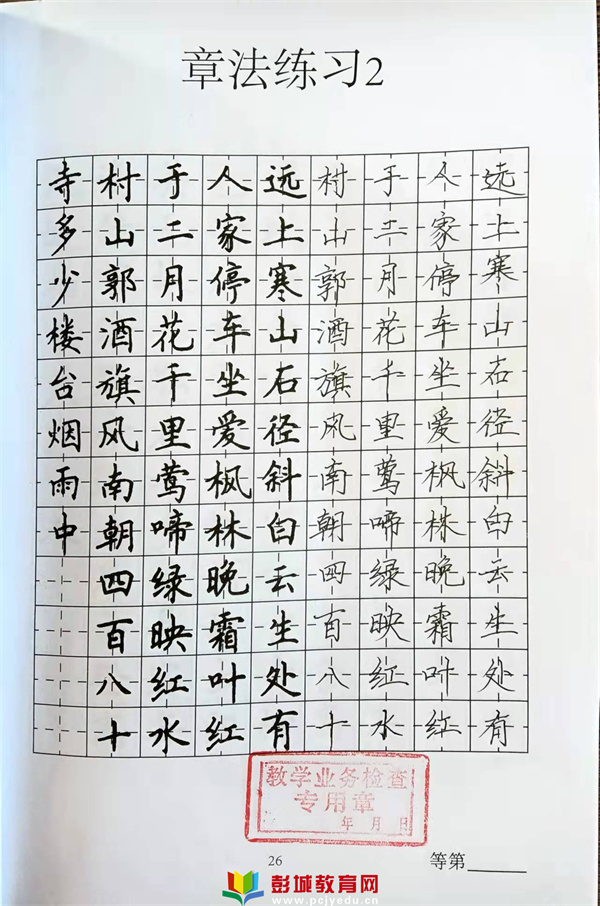 章法练习2
远上寒山石径斜白云生处有
人家停车坐爱枫林晚霜叶红
于二月花千里莺啼绿映红水
村山郭酒旗风南朝四百八十
远上寒山石径斜白云生处有
人家停车坐爱枫林晚霜叶红
于二月花千里莺啼绿映红水
村山郭酒旗风南朝四百八十
寺多少楼台烟雨中
教学业务检查
专用章
年 月 日
26
等第
彭城教育网
www.pcjyedu.cn